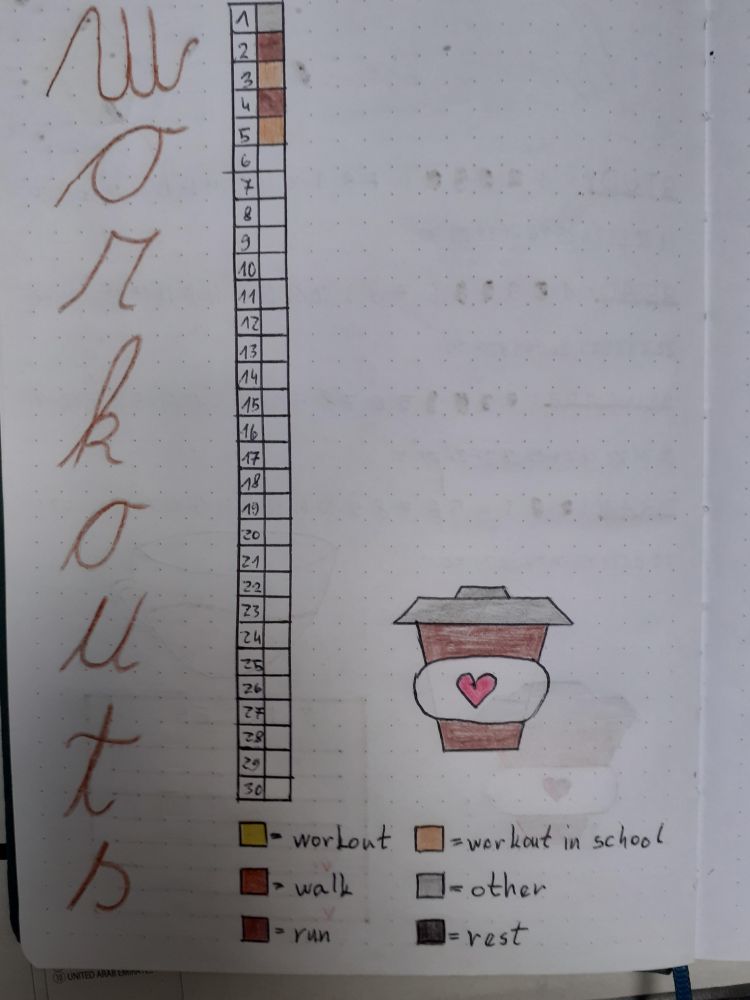 workouts
1
2
3
4
5
6
7
8
9
10
11
12
13
14
15
16
17
18
19
20
21
22
23
24
25
26
27
28
29
30
= workout
= workout in school
= walk
= other
= run
= rest
UNITED ARAB EMIRATES